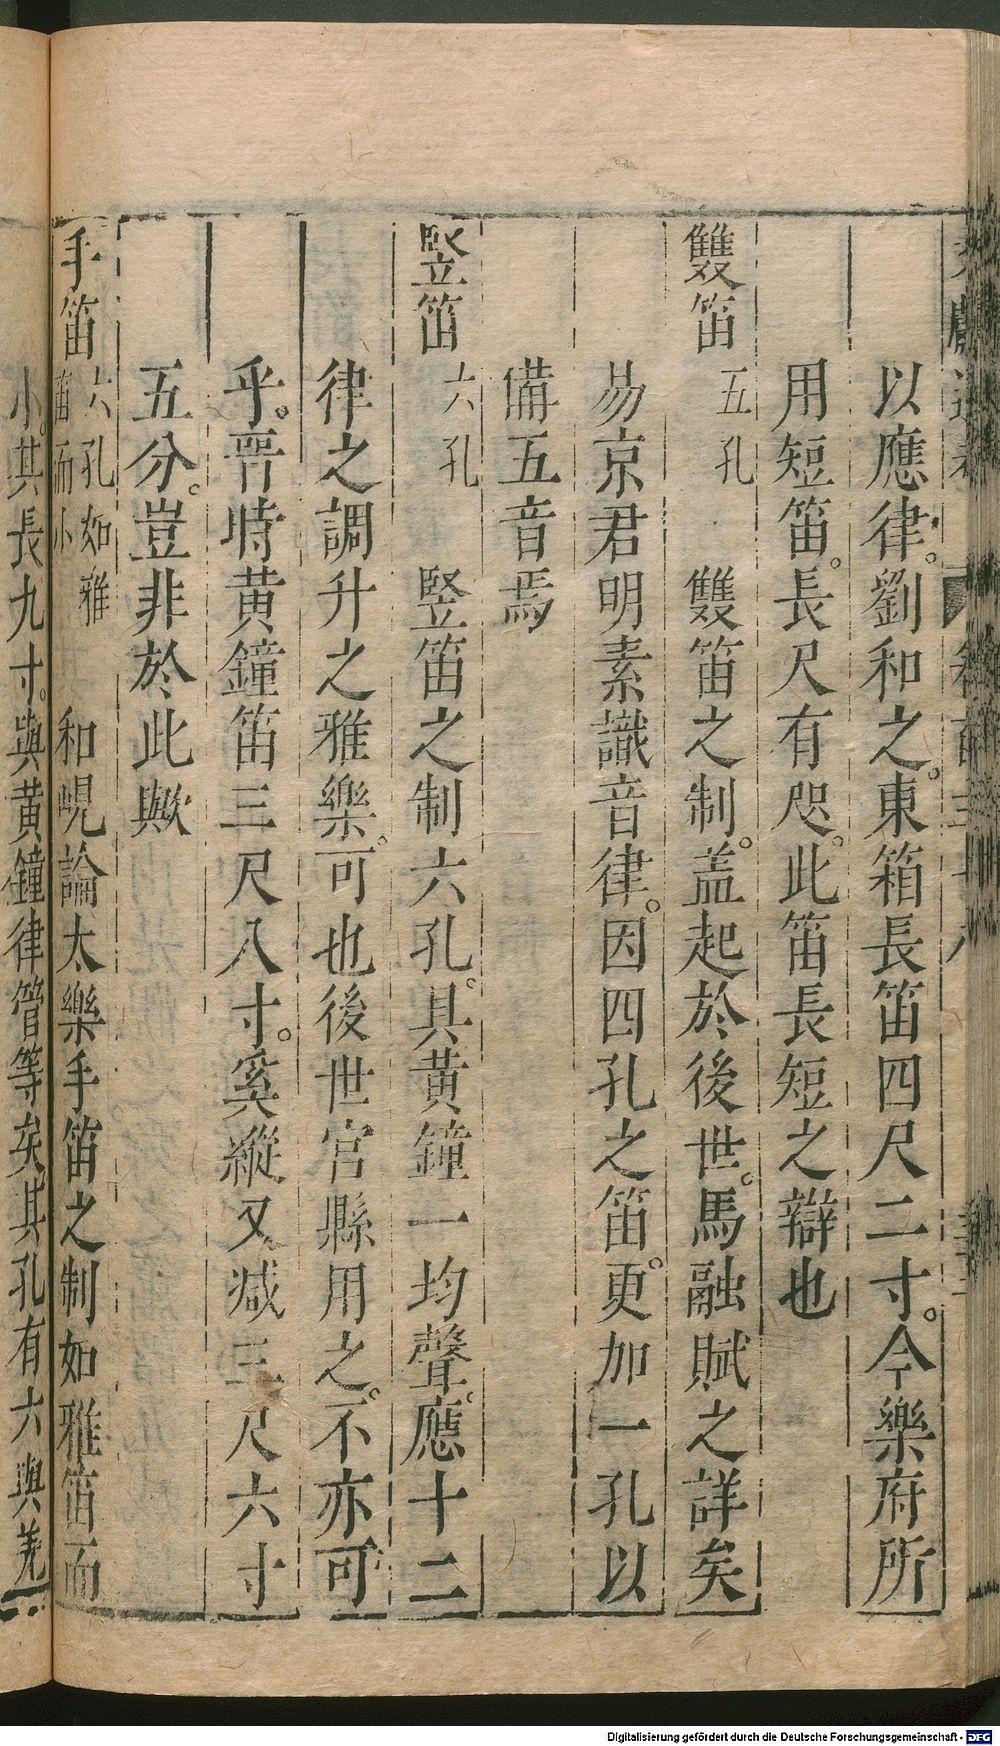 以應律。劉和之。東箱長笛四尺二寸。今樂府所
用短笛。長尺有咫。此笛長短之辯也
雙笛 五孔 雙笛之制。盖起於後世。馬融賦之詳矣
易京君明素識音律。因四孔之笛。更加一孔以
備五音焉
竪笛 六孔 竪笛之制六孔。具黃鐘一均聲。應十二
律之調升之雅樂。可也後世宫縣用之。不亦可
乎。晉時黃鐘笛三尺八寸。奚縱又减三尺六寸
五分。豈非於此歟
手笛 六孔如雅
笛而小 和峴論太樂手笛之制如雅笛而
小。其長九寸。與黃鐘律管等矣其孔有六與羌
Digitalisierung gefördert durch die Deutsche Forschungsgemeinschaft - DFG